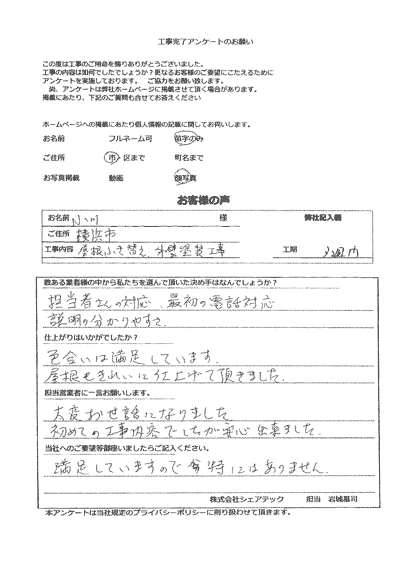 工事完了アンケートのお願い
この度は工事のご用命を賜りありがとうございました。
工事の内容は如何でしたでしょうか?更なるお客様のご要望にこたえるために
アンケートを実施しております。 ご協力をお願い致します。
尚、アンケートは弊社ホームページに掲載させて頂く場合があります。
掲載にあたり、下記のご質問も合せてお答えください
ホームページへの掲載にあたり個人情報の記載に関してお伺いします。
お名前 フルネーム可 苗字のみ
ご住所 市・区まで 町名まで
お写真掲載 動画 顔写真
お客様の声
お名前 様 弊社記入欄
ご住所 横浜市
工事内容 屋根ふき替え、外壁塗装工事 工期 3週間
数ある業者様の中から私たちを選んで頂いた決め手はなんでしょうか?
担当者さんの対応、最初の電話対応
説明の分かりやすさ
仕上がりはいかがでしたか?
色合いは満足しています。
屋根もきれいに仕上げて頂きました。
担当営業者に一言お願いします。
大変お世話になりました
初めての工事内容でしたが安心出来ました。
当社へのご要望等御座いましたらご記入ください。
満足していますので 特にはありません。
株式会社シェアテック 担当 岩城基司
本アンケートは当社規定のプライバシーポリシーに則り扱わせて頂きます。